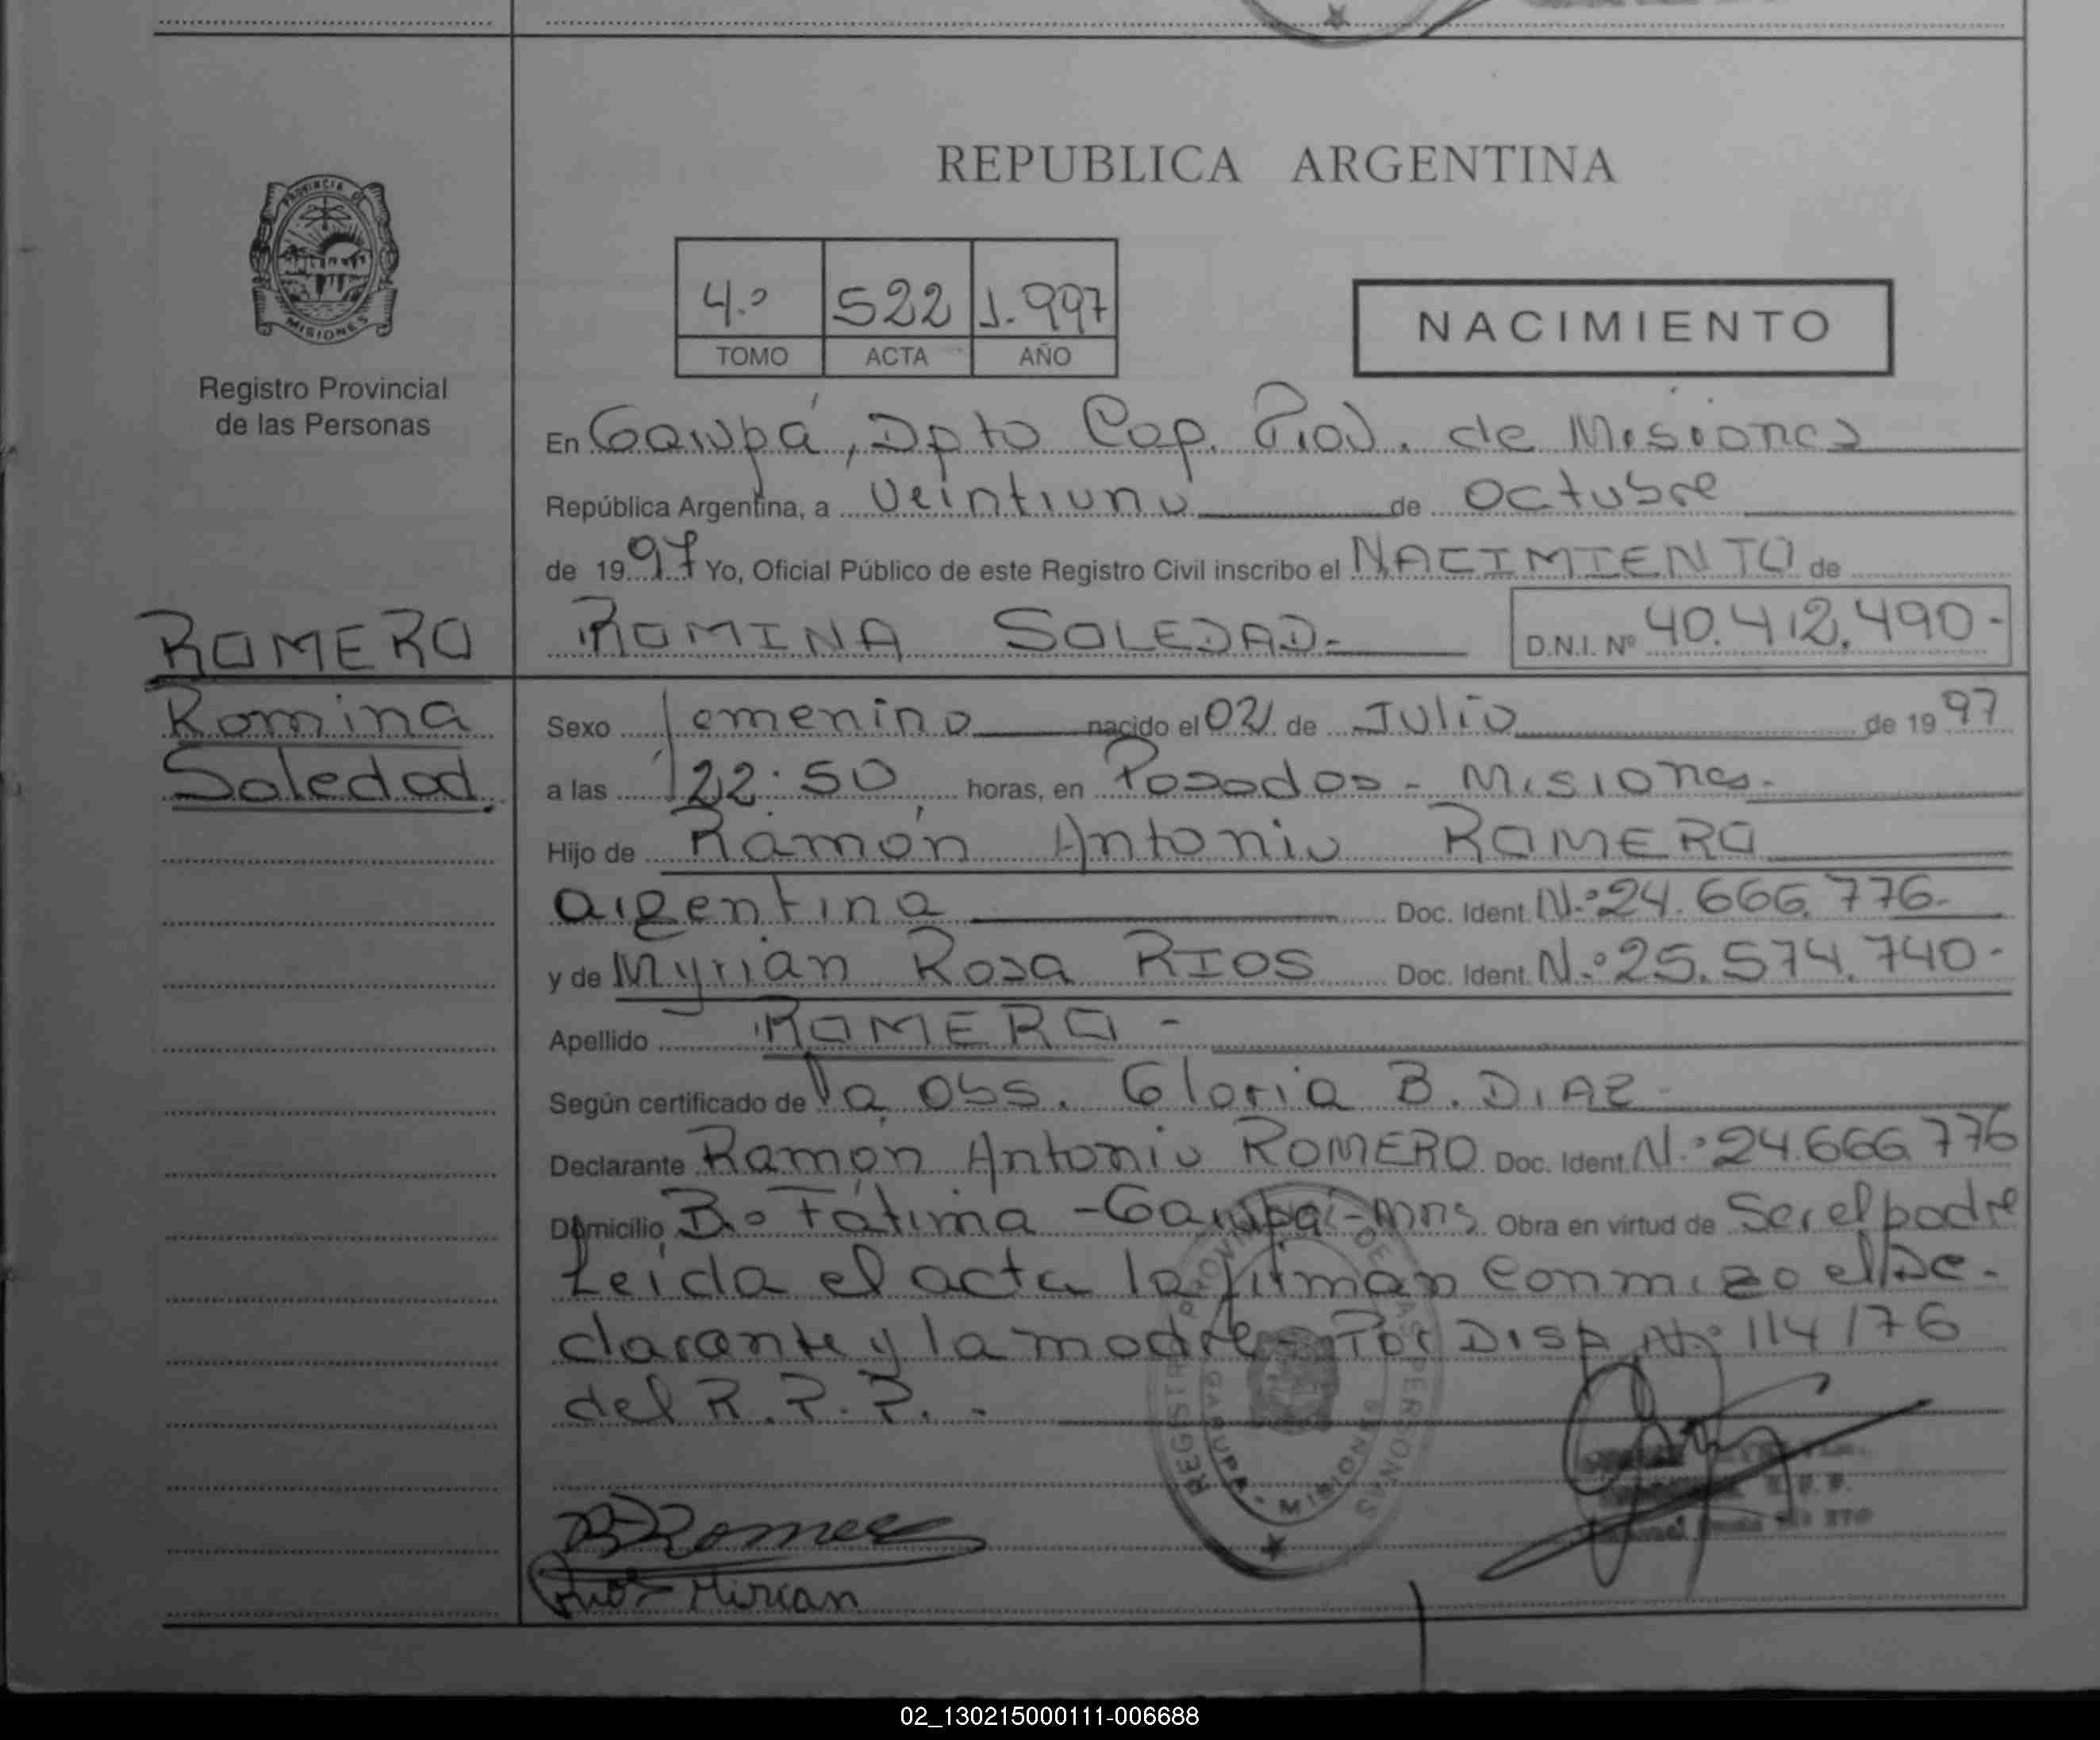 REPUBLICA ARGENTINA
PROVINCIA DE
MISIONES
Registro Provincial
de las Personas
4.º 522 1.997
TOMO ACTA AÑO
NACIMIENTO
En Garupá, Dpto Cap. Prov. de Misiones
República Argentina, a Veintiuno de Octubre
de 1997 Yo, Oficial Público de este Registro Civil inscribo el NACIMIENTO de
ROMINA SOLEDAD- D.N.I. Nº 40.412.490-
ROMERO
Romina
Soledad.
Sexo femenino nacido el 02 de Julio de 1997
a las 22:50 horas, en Posadas - Misiones-
Hijo de Ramón Antonio ROMERO
argentina Doc. Ident. N.º 24.666.776-
y de Myrian Rosa RIOS Doc. Ident. N.º 25.574.740-
Apellido ROMERO -
Según certificado de la Obs. Gloria B. DIAZ-
Declarante Ramón Antonio ROMERO Doc. Ident. N.º 24.666.776
Domicilio B.º Fátima - Garupá - Mns. Obra en virtud de Ser el padre
Leida el acta la firman conmigo el De-
clarante y la madre - Por Disp. N.º 114/76
del R.P.P. -
REGISTRO PROVINCIAL DE LAS PERSONAS
GARUPA - MISIONES
Romero
Rios Mirian
02_130215000111-006688